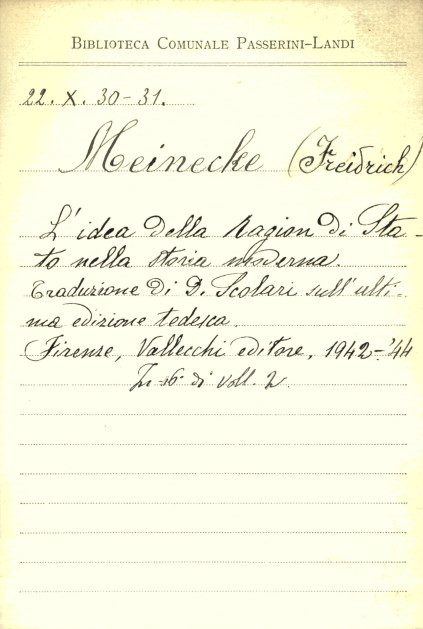 BIBLIOTECA COMUNALE PASSERINI-LANDI
22. X. 30-31.
Meinecke (Freidrich)
L'idea della Ragion di Sta-
to nella storia moderna.
Traduzione di D. Scolari sull'ulti-
ma edizione tedesca.
Firenze, Vallecchi editore, 1942-'44
In-16° di voll. 2